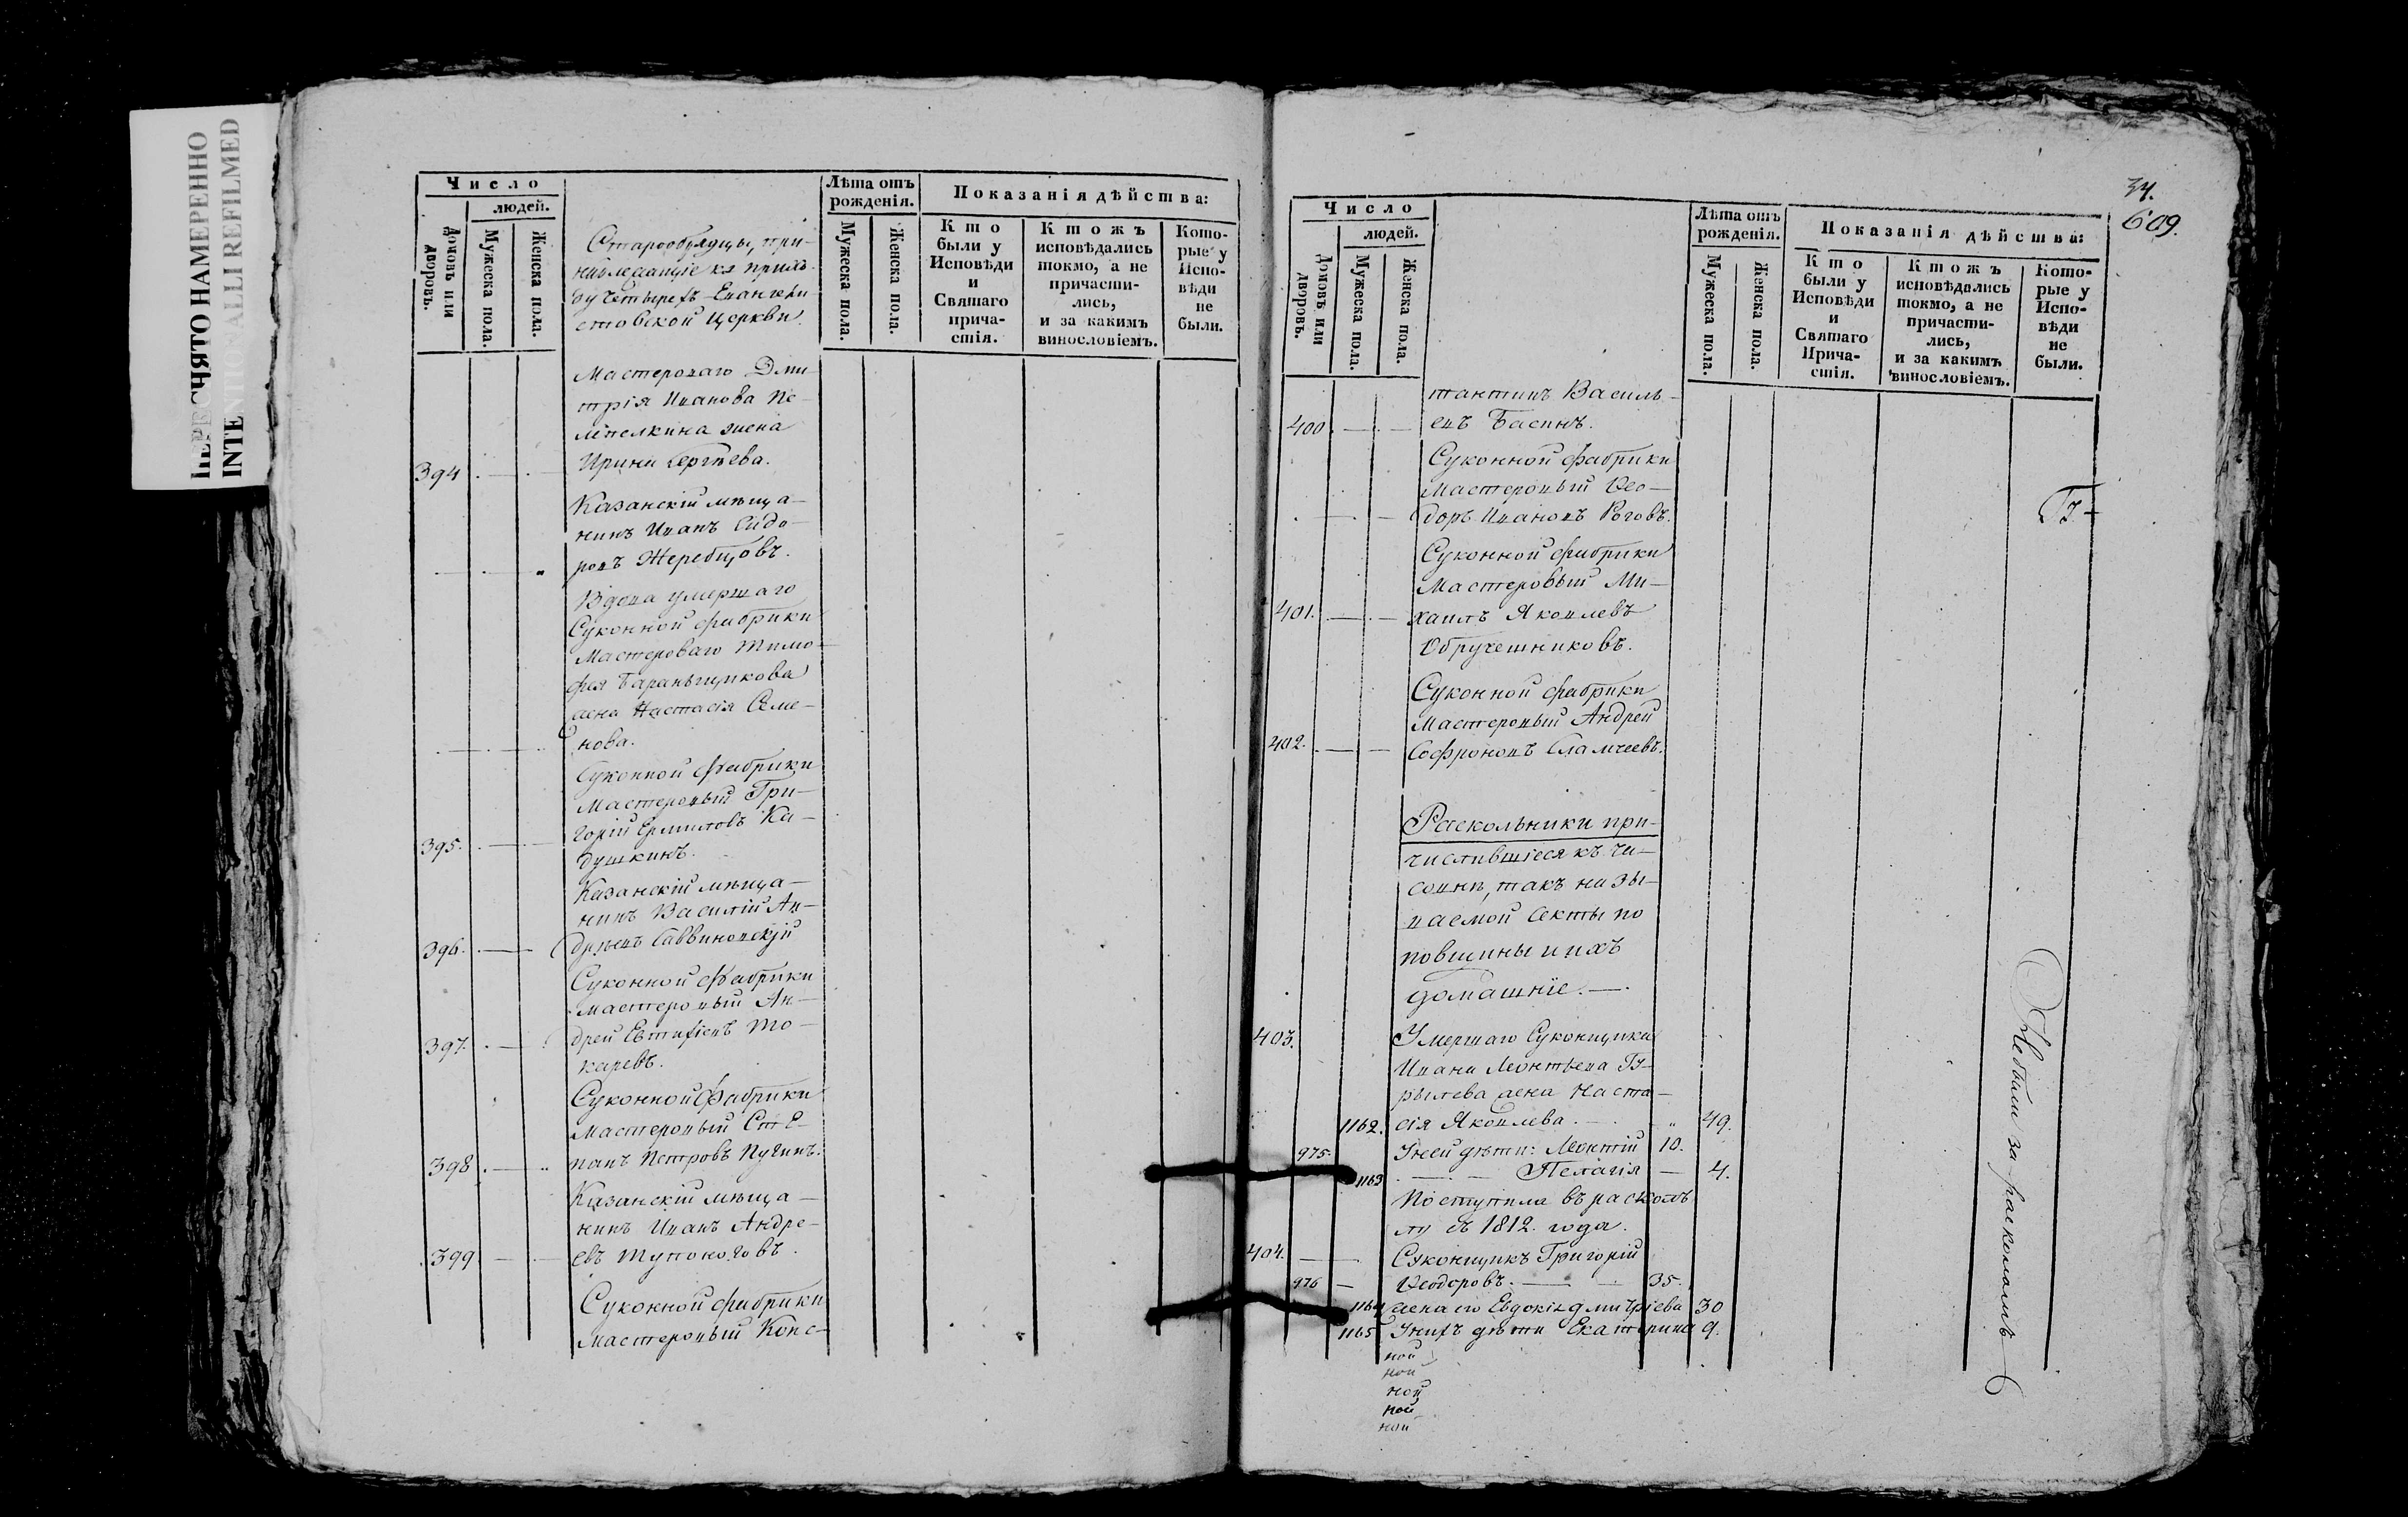 ПЕРЕСНЯТО НАМЕРЕННО
INTENTIONALLY REFILMED
Число
людей.
Домовъ или дворовъ.
Мужеска пола.
Женска пола.
Старообрядцы, при-
надлежащіе къ прихо-
ду Четырехъ-Евангели-
стовской Церкви.
Лѣта отъ рожденія.
Мужеска пола.
Женска пола.
Показанія дѣйства:
Кто были у Исповѣди и Святаго причастія.
Ктожъ исповѣдались токмо, а не причастились, и за какимъ винословіемъ.
Которые у Исповѣди не были.
Мастероваго Дми-
трія Иванова Пе-
жена
394 Ирина Сергѣева.
Казанскій мѣща-
нинъ Иванъ Сидо-
ровъ Жеребцовъ.
Вдова умершаго
Суконной фабрики
Мастероваго Тимо-
фея Бараньщикова
жена Настасія Семе-
нова.
Суконной Фабрики
Мастеровый Гри-
горій Ермиловъ Ка-
395. душкинъ.
Казанскій мѣща-
нинъ Василій Ан-
396. дрѣевъ Саввиновскій
Суконной Фабрики
мастеровый Ан-
397. дрей Евтифіевъ То-
каревъ.
Суконной Фабрики
Мастеровый Сте-
398 панъ Петровъ Пугинъ.
Казанскій мѣща-
нинъ Иванъ Андре-
399 евъ Тупоноговъ.
Суконной фабрики
Мастеровый Конс-
34.
609.
Число
людей.
Домовъ или дворовъ.
Мужеска пола.
Женска пола.
Лѣта отъ рожденія.
Мужеска пола.
Женска пола.
Показанія дѣйства:
Кто были у Исповѣди и Святаго Причастія.
Ктожъ исповѣдались токмо, а не причастились, и за какимъ винословіемъ.
Которые у Исповѣди не были.
тантинъ Василь-
400 евъ Басинъ.
Суконной фабрики
Мастеровый Ѳео-
доръ Ивановъ Роговъ.
Суконной фабрики
Мастеровый Ми-
401. хаилъ Яковлевъ
Обручешниковъ.
Суконной фабрики
Мастеровый Андрей
402. Софроновъ Сламчеевъ.
Раскольники при-
числившіеся къ
такъ назы-
ваемой Секты по
повщины и ихъ
домашніе.
403. Умершаго Суконщика
Ивана Леонтьева Гу-
рылева жена Наста-
1162. сія Яковлева. 49.
975. У ней дѣти: Леонтій 10.
1163 Пелагія 4.
Поступила въ расколъ
съ 1812. года.
404. Суконщикъ Григорій
976 Ѳеодоровъ. 35.
1164 жена его Евдокія Дмитріева 30
1165 У нихъ дѣти Екатерина 9.
Небыли за расколомъ
ной
ной
ной
ной
ной